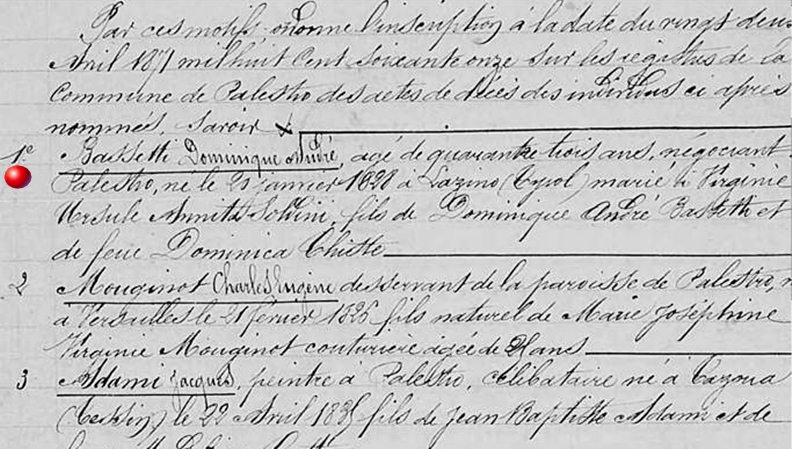 Par ces motifs ordonne l'inscription à la date du vingt deux
Avril 1871 mil huit Cent soixante onze sur les registres de la
Commune de Palestro des actes de décès des individus ci après
nommés, savoir
1° Bassetti Dominique André, agé de quarante trois ans, négociant
Palestro, né le 21 janvier 1828 à Lazino (Tyrol) marié à Virginie
Ursule Annita Solvini, fils de Dominique André Bassetti et
de feue Dominica Chiste
2 Mouginot Charles Eugène desservant de la paroisse de Palestro, n
à Versailles le 21 février 1826 fils naturel de Marie Joséphine
Virginie Mouginot couturiere agée de ans
3 Adami Jacques, peintre à Palestro, célibataire né à
(Tessin) le 22 Avril 1835 fils de Jean Baptiste Adami et de